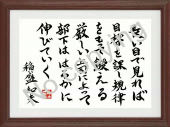 長い目で見れば
目標を課し規律
をもって鍛える
厳しい上司によって
部下ははるかに
伸びていく
稲盛和夫